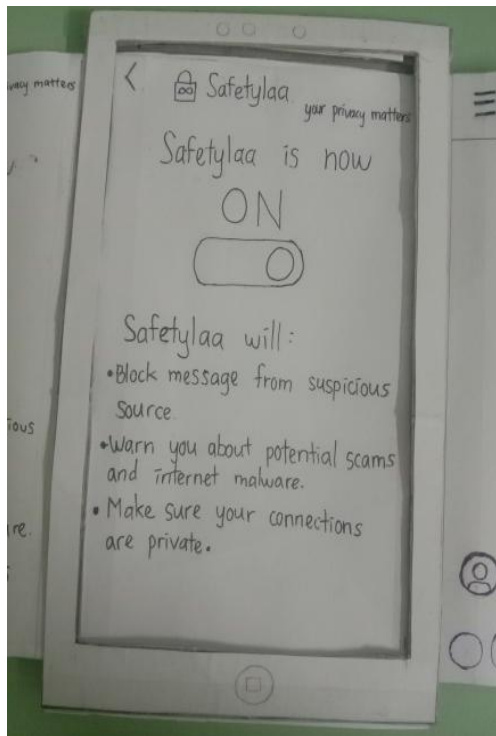 vacy matters
Safetylaa
your privacy matters
Safetylaa is now
ON
Safetylaa will:
•Block message from suspicious
source
•Warn you about potential scams
and internet malware.
• Make sure your connections
are private.
ious
re.